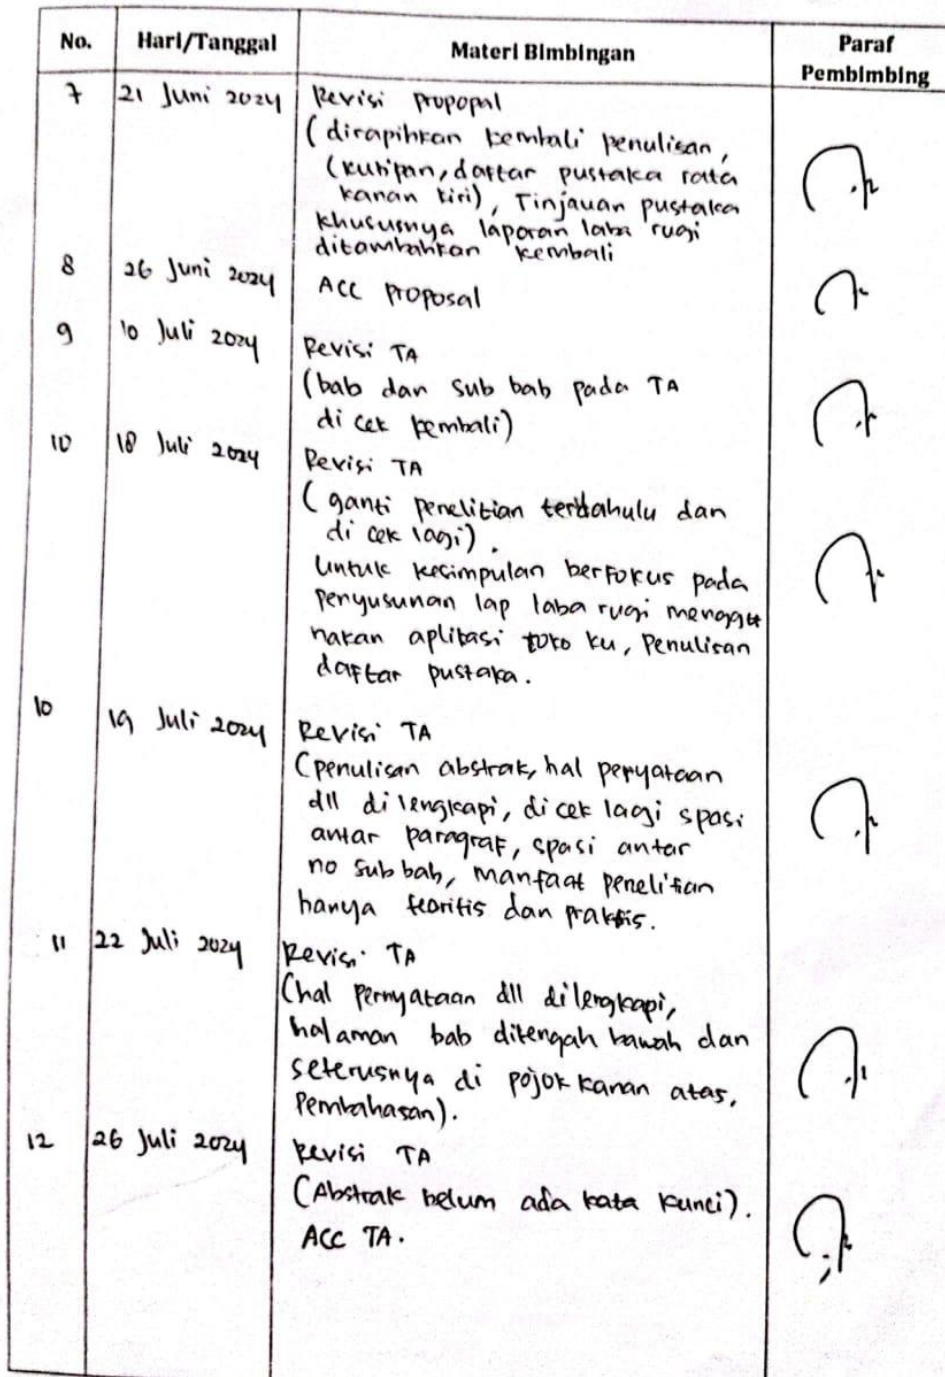 No. Hari/Tanggal Materi Bimbingan Paraf Pembimbing
7 21 Juni 2024 Revisi propopal
(dirapihkan kembali penulisan,
(kutipan, daftar pustaka rata
kanan kiri), Tinjauan pustaka
khususnya laporan laba rugi
ditambahkan kembali
8 26 Juni 2024 ACC proposal
9 10 Juli 2024 Revisi TA
(bab dan sub bab pada TA
di cek kembali)
10 18 Juli 2024 Revisi TA
(ganti penelitian terdahulu dan
di cek lagi).
Untuk kesimpulan berfokus pada
penyusunan lap laba rugi menggu
nakan aplikasi toko ku, Penulisan
daftar pustaka.
10 19 Juli 2024 Revisi TA
(penulisan abstrak, hal peryataan
dll di lengkapi, di cek lagi spasi
antar paragraf, spasi antar
no sub bab, manfaat penelitian
hanya teoritis dan praktis.
11 22 Juli 2024 Revisi TA
(hal Pernyataan dll dilengkapi,
halaman bab ditengah bawah dan
seterusnya di pojok kanan atas,
Pembahasan).
12 26 Juli 2024 Revisi TA
(Abstrak belum ada kata kunci).
ACC TA.